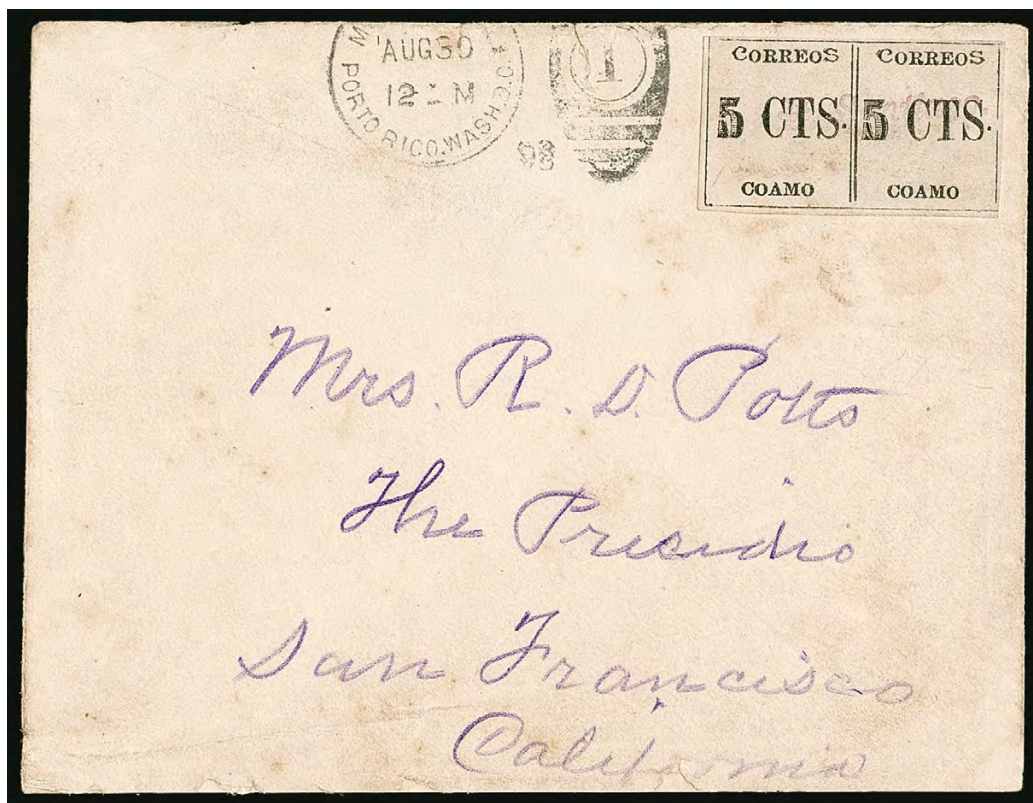 AUG30
12 M
PORTO RICO. WASH. D.C.
98
1
CORREOS CORREOS
5 CTS. 5 CTS.
COAMO COAMO
Mrs. R. D. Potts
The Presidio
San Francisco
California